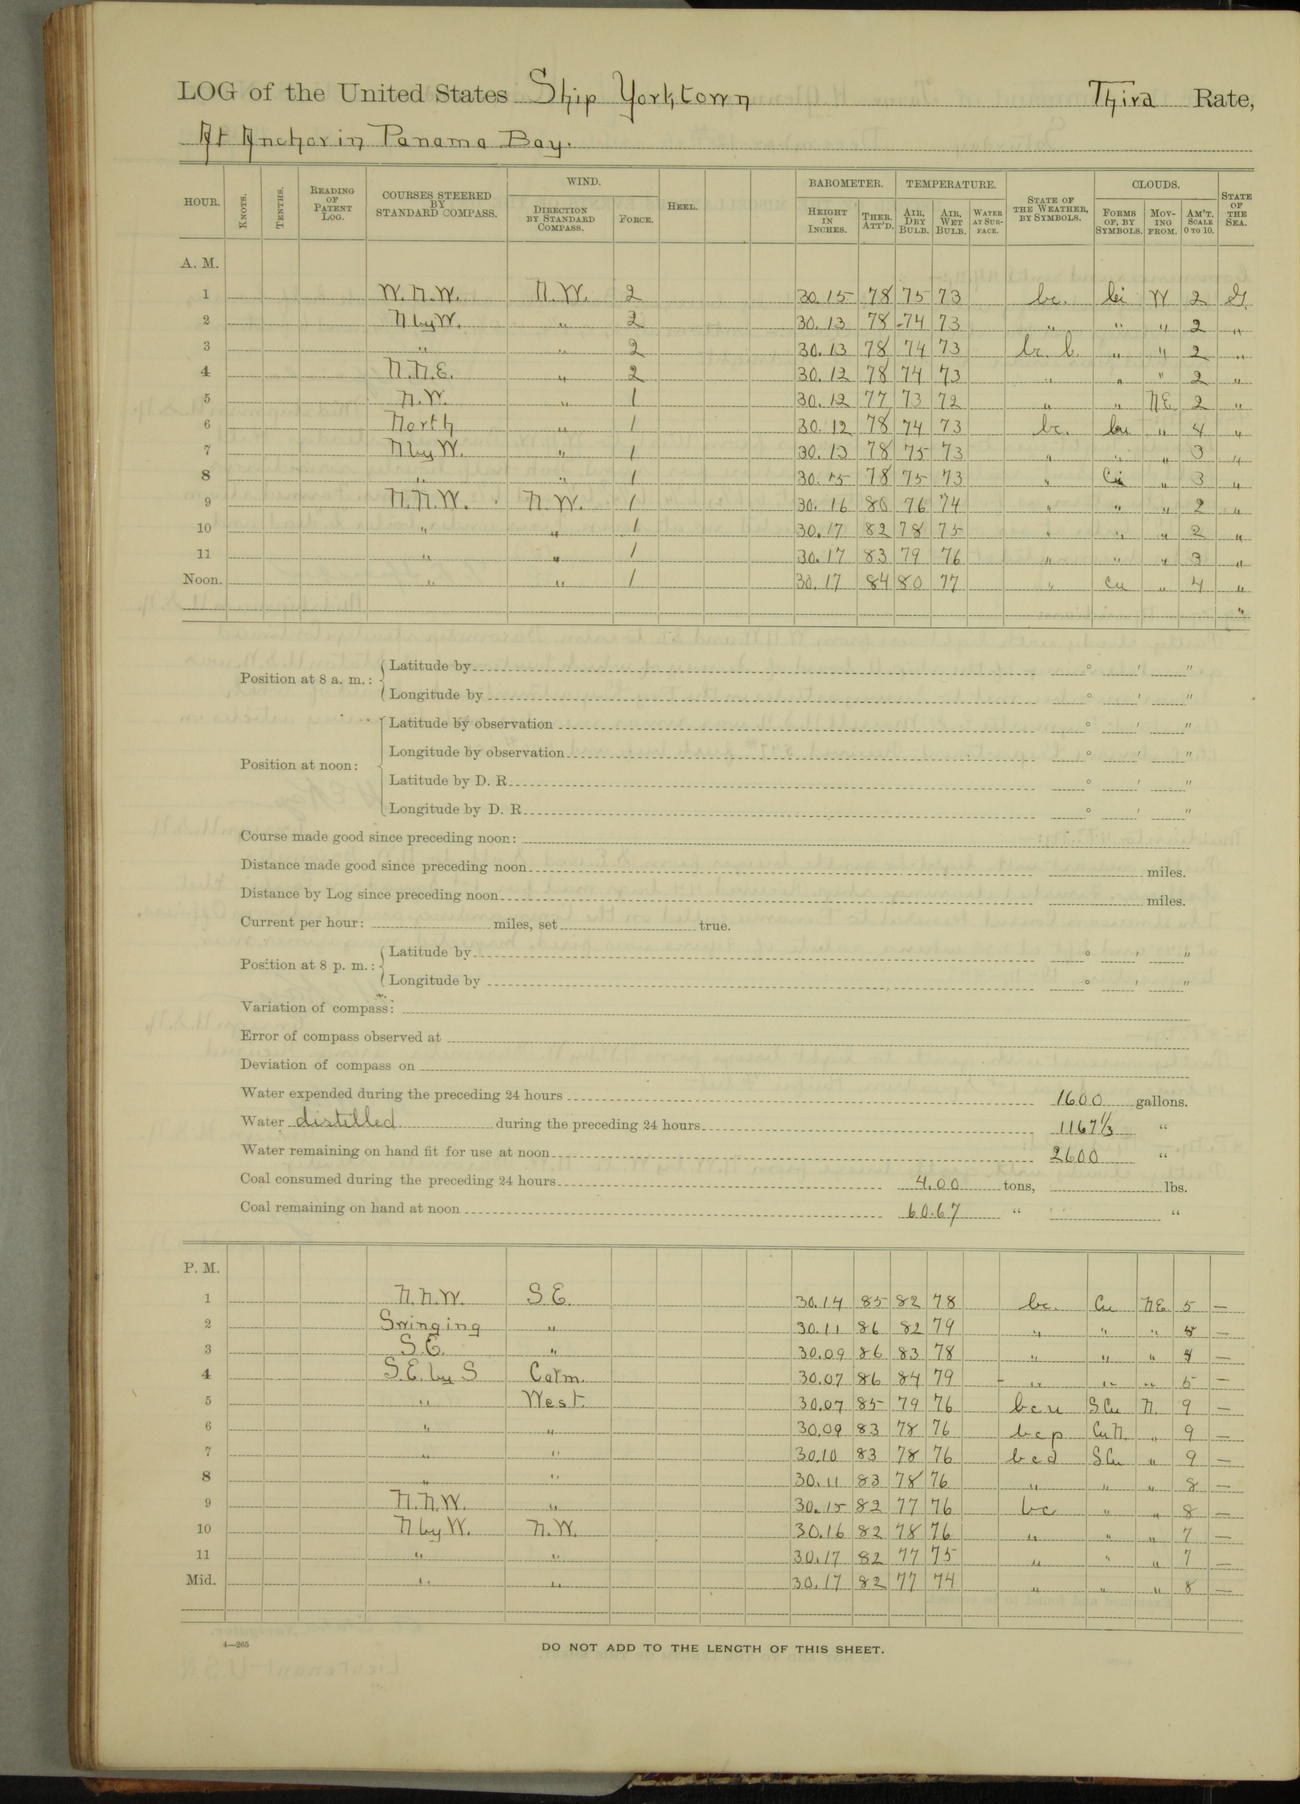 LOG of the United States Ship Yorktown Third Rate,
At Anchor in Panama Bay.
HOUR. KNOTS. TENTHS. READING OF PATENT LOG. COURSES STEERED BY STANDARD COMPASS. WIND. DIRECTION BY STANDARD COMPASS. FORCE. HEEL. BAROMETER. HEIGHT IN INCHES. THER. ATT'D. TEMPERATURE. AIR, DRY BULB. AIR, WET BULB. WATER AT SURFACE. STATE OF THE WEATHER, BY SYMBOLS. CLOUDS. FORMS OF, BY SYMBOLS. MOVING FROM. AM'T. SCALE 0 TO 10. STATE OF THE SEA.
A. M.
1 W.N.W. N.W. 2 30.15 78 75 73 bc. W 2
2 N by W. " 2 30.13 78 74 73 " " " 2 "
3 " " 2 30.13 78 74 73 " " 2 "
4 N.N.E. " 2 30.12 78 74 73 " " " 2 "
5 N.W. " 1 30.12 77 73 72 " " NE 2 "
6 North " 1 30.12 78 74 73 bc. " 4 "
7 N by W. " 1 30.13 78 75 73 " " " 3 "
8 " " 1 30.15 78 75 73 " Ci " 3 "
9 N.N.W. N.W. 1 30.16 80 76 74 " " " 2 "
10 " " 1 30.17 82 78 75 " " " 2 "
11 " " 1 30.17 83 79 76 " " " 3 "
Noon. " " 1 30.17 84 80 77 " Cu " 4 "
"
Position at 8 a. m.: Latitude by ° ' "
Longitude by ° ' "
Position at noon: Latitude by observation ° ' "
Longitude by observation ° ' "
Latitude by D. R. ° ' "
Longitude by D. R. ° ' "
Course made good since preceding noon:
Distance made good since preceding noon miles.
Distance by Log since preceding noon miles.
Current per hour: miles, set true.
Position at 8 p. m.: Latitude by ° ' "
Longitude by ° ' "
Variation of compass:
Error of compass observed at
Deviation of compass on
Water expended during the preceding 24 hours 1600 gallons.
Water distilled during the preceding 24 hours 1167 1/3 "
Water remaining on hand fit for use at noon 2600 "
Coal consumed during the preceding 24 hours 4.00 tons, lbs.
Coal remaining on hand at noon 60.67 " "
P. M.
1 N.N.W. S.E. 30.14 85 82 78 bc. Cu NE 5 —
2 Swinging " 30.11 86 82 79 " " " —
3 S.E. " 30.09 86 83 78 " " " —
4 S.E. by S Calm. 30.07 86 84 79 " " " 5 —
5 " West. 30.07 85 79 76 bcu S.Cu N. 9 —
6 " " 30.09 83 78 76 bcp Cu.N. " 9 —
7 " " 30.10 83 78 76 bcd S.Cu " 9 —
8 " " 30.11 83 78 76 " " " 8 —
9 N.N.W. " 30.15 82 77 76 bc " " 8 —
10 N by W. N.W. 30.16 82 78 76 " " " 7 —
11 " " 30.17 82 77 75 " " " 7 —
Mid. " " 30.17 82 77 74 " " " 8 —
4—265
DO NOT ADD TO THE LENGTH OF THIS SHEET.